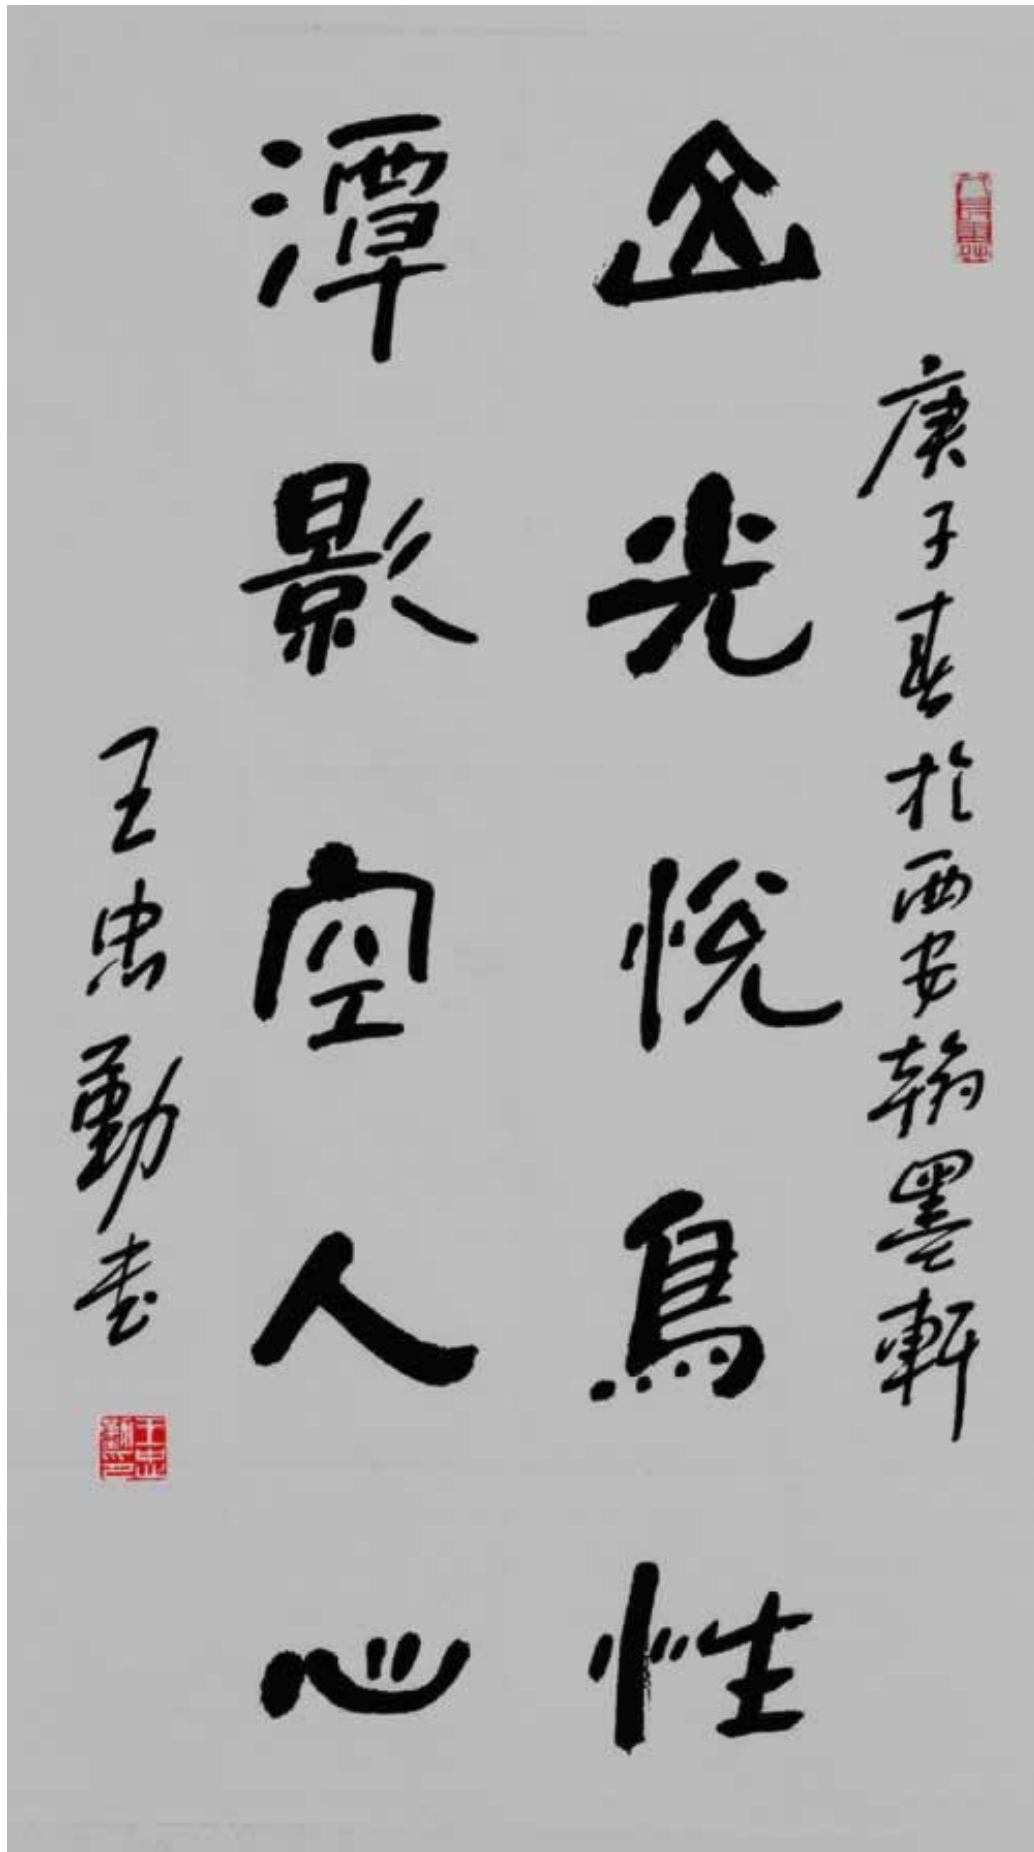 庚子春於西安翰墨軒
山光悅鳥性
潭影空人心
王忠勤書
王忠勤印